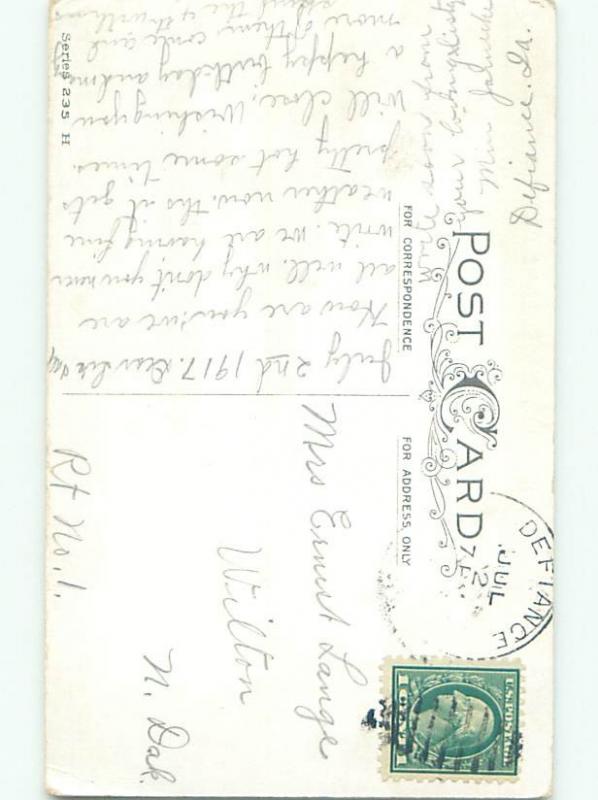 POST CARD
FOR CORRESPONDENCE
FOR ADDRESS ONLY
Series 235 H
July 2nd 1917. Dear
How are you. we are
all well. why don't you never
write. we are having fine
weather now. tho it gets
pretty hot some times.
Will close, Wishing you
a happy birthday and many
more of them come and
spend the 4th with us
Write soon from
your
Mrs
Defiance. Ia.
DEFIANCE
JUL
2
U.S. POSTAGE
1 CENT 1
Mrs Ernest Lange
Wilton
N. Dak.
Rt No. 1.